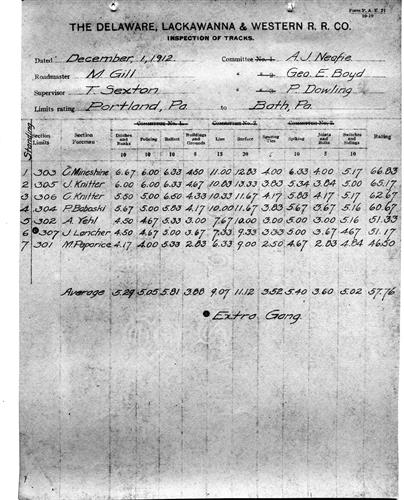 Form P. A. E. 21
10-10
THE DELAWARE, LACKAWANNA & WESTERN R. R. CO.
INSPECTION OF TRACKS.
Dated December, 1, 1912. Committee No. 1 A. J. Neafie
Roadmaster M. Gill Geo. E. Boyd
Supervisor T. Sexton P. Dowling
Limits rating Portland, Pa to Bath, Pa.
Standing
COMMITTEE No. 1. COMMITTEE No. 2. COMMITTEE No. 3.
Section Limits Section Foreman Ditches and Banks Policing Ballast Buildings and Grounds Line Surface Spacing Ties Spiking Joints and Bolts Switches and Sidings Rating
10 10 10 8 15 20 5 10 5 10
1 303 C. Mineshine 6.67 6.00 6.33 4.50 11.00 12.83 4.00 6.33 4.00 5.17 66.83
2 305 J. Knitter 6.00 6.00 6.33 4.67 10.83 13.33 3.83 5.34 3.84 5.00 65.17
3 306 C. Knitter 5.50 5.00 6.50 4.33 10.33 11.67 4.17 5.83 4.17 5.17 62.67
4 304 P. Baboski 5.67 5.00 5.83 4.17 10.00 11.67 3.83 5.67 3.67 5.16 60.67
5 302 A. Yehl 4.50 4.67 5.33 3.00 7.67 10.00 3.00 5.00 3.00 5.16 51.33
6 307 J. Loncher 4.50 4.67 5.00 3.67 7.33 9.33 3.33 5.00 3.67 4.67 51.17
7 301 M. Paporice 4.17 4.00 5.33 2.83 6.33 9.00 2.50 4.67 2.83 4.84 46.50
Average 5.29 5.05 5.81 3.88 9.07 11.12 3.52 5.40 3.60 5.02 57.76
Extra Gang